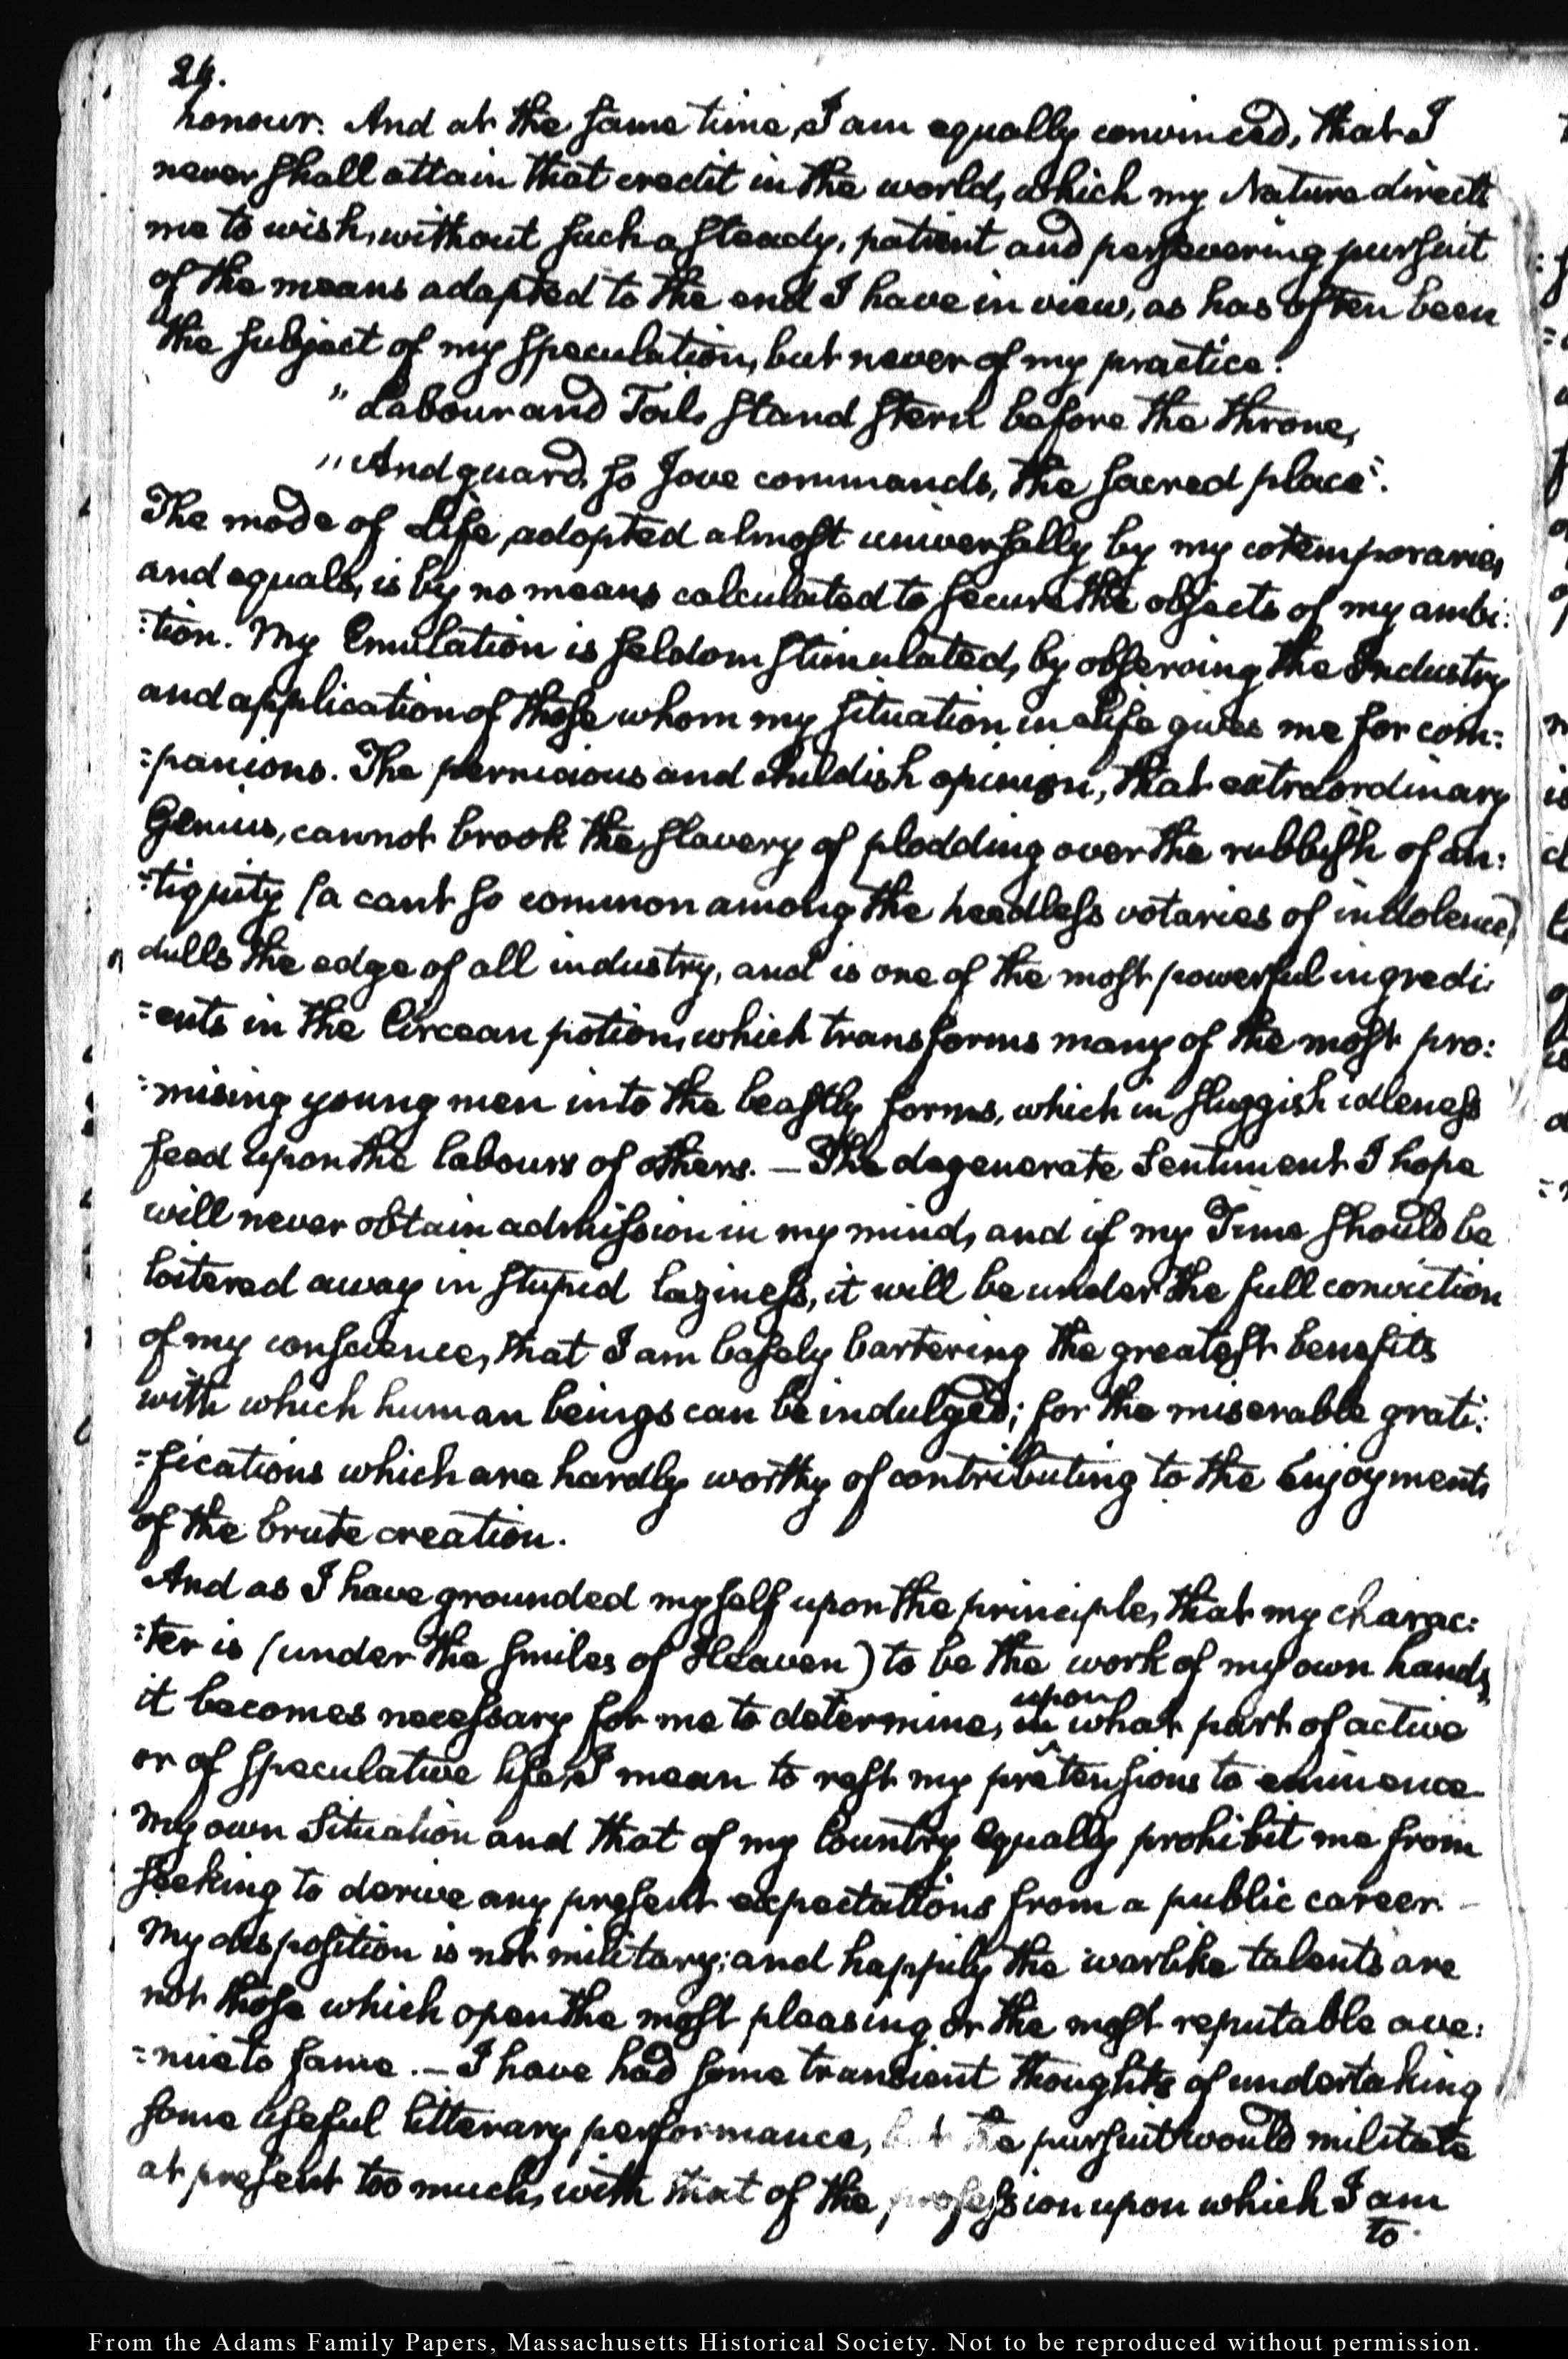 24.
honour. And at the same time, I am equally convinced, that I
never shall attain that credit in the world, which my Nature directs
me to wish, without such a steady, patient and persevering pursuit
of the means adapted to the end I have in view, as has often been
the subject of my speculation, but never of my practice.
"Labour and Toils stand stern before the throne,
"And guard, so Jove commands, the sacred place".
The mode of Life, adopted almost universally by my cotemporaries
and equals, is by no means calculated to secure the objects of my ambi:
:tion. My Emulation is seldom stimulated, by observing the Industry
and application of those whom my situation in Life gives me for com:
:panions. The pernicious and childish opinion, that extraordinary
Genius, cannot brook the slavery of plodding over the rubbish of an:
:tiquity (a cant so common among the heedless votaries of indolence)
dulls the edge of all industry, and is one of the most powerful ingredi:
:ents in the Circean potion, which transforms many of the most pro:
:mising young men into the beastly forms, which in sluggish idleness
feed upon the labours of others. — The degenerate Sentiment I hope
will never obtain admission in my mind, and if my Time should be
loitered away in stupid laziness, it will be under the full conviction
of my conscience, that I am basely bartering the greatest benefits
with which human beings can be indulged; for the miserable grati:
:fications which are hardly worthy of contributing to the Enjoyments
of the brute creation.
And as I have grounded myself upon the principle, that my charac:
:ter is (under the smiles of Heaven) to be the work of my own hands,
upon
it becomes necessary for me to determine, in what part of active
or of speculative life, I mean to rest my pretensions to eminence
My own Situation and that of my Country equally prohibit me from
seeking to derive any present expectations from a public career —
My disposition is not military; and happily the warlike talents are
not those which open the most pleasing or the most reputable ave:
:nue to fame. — I have had some transient thoughts of undertaking
some useful litterary performance, but the pursuit would militate
at present too much, with that of the profession upon which I am
to
From the Adams Family Papers, Massachusetts Historical Society. Not to be reproduced without permission.